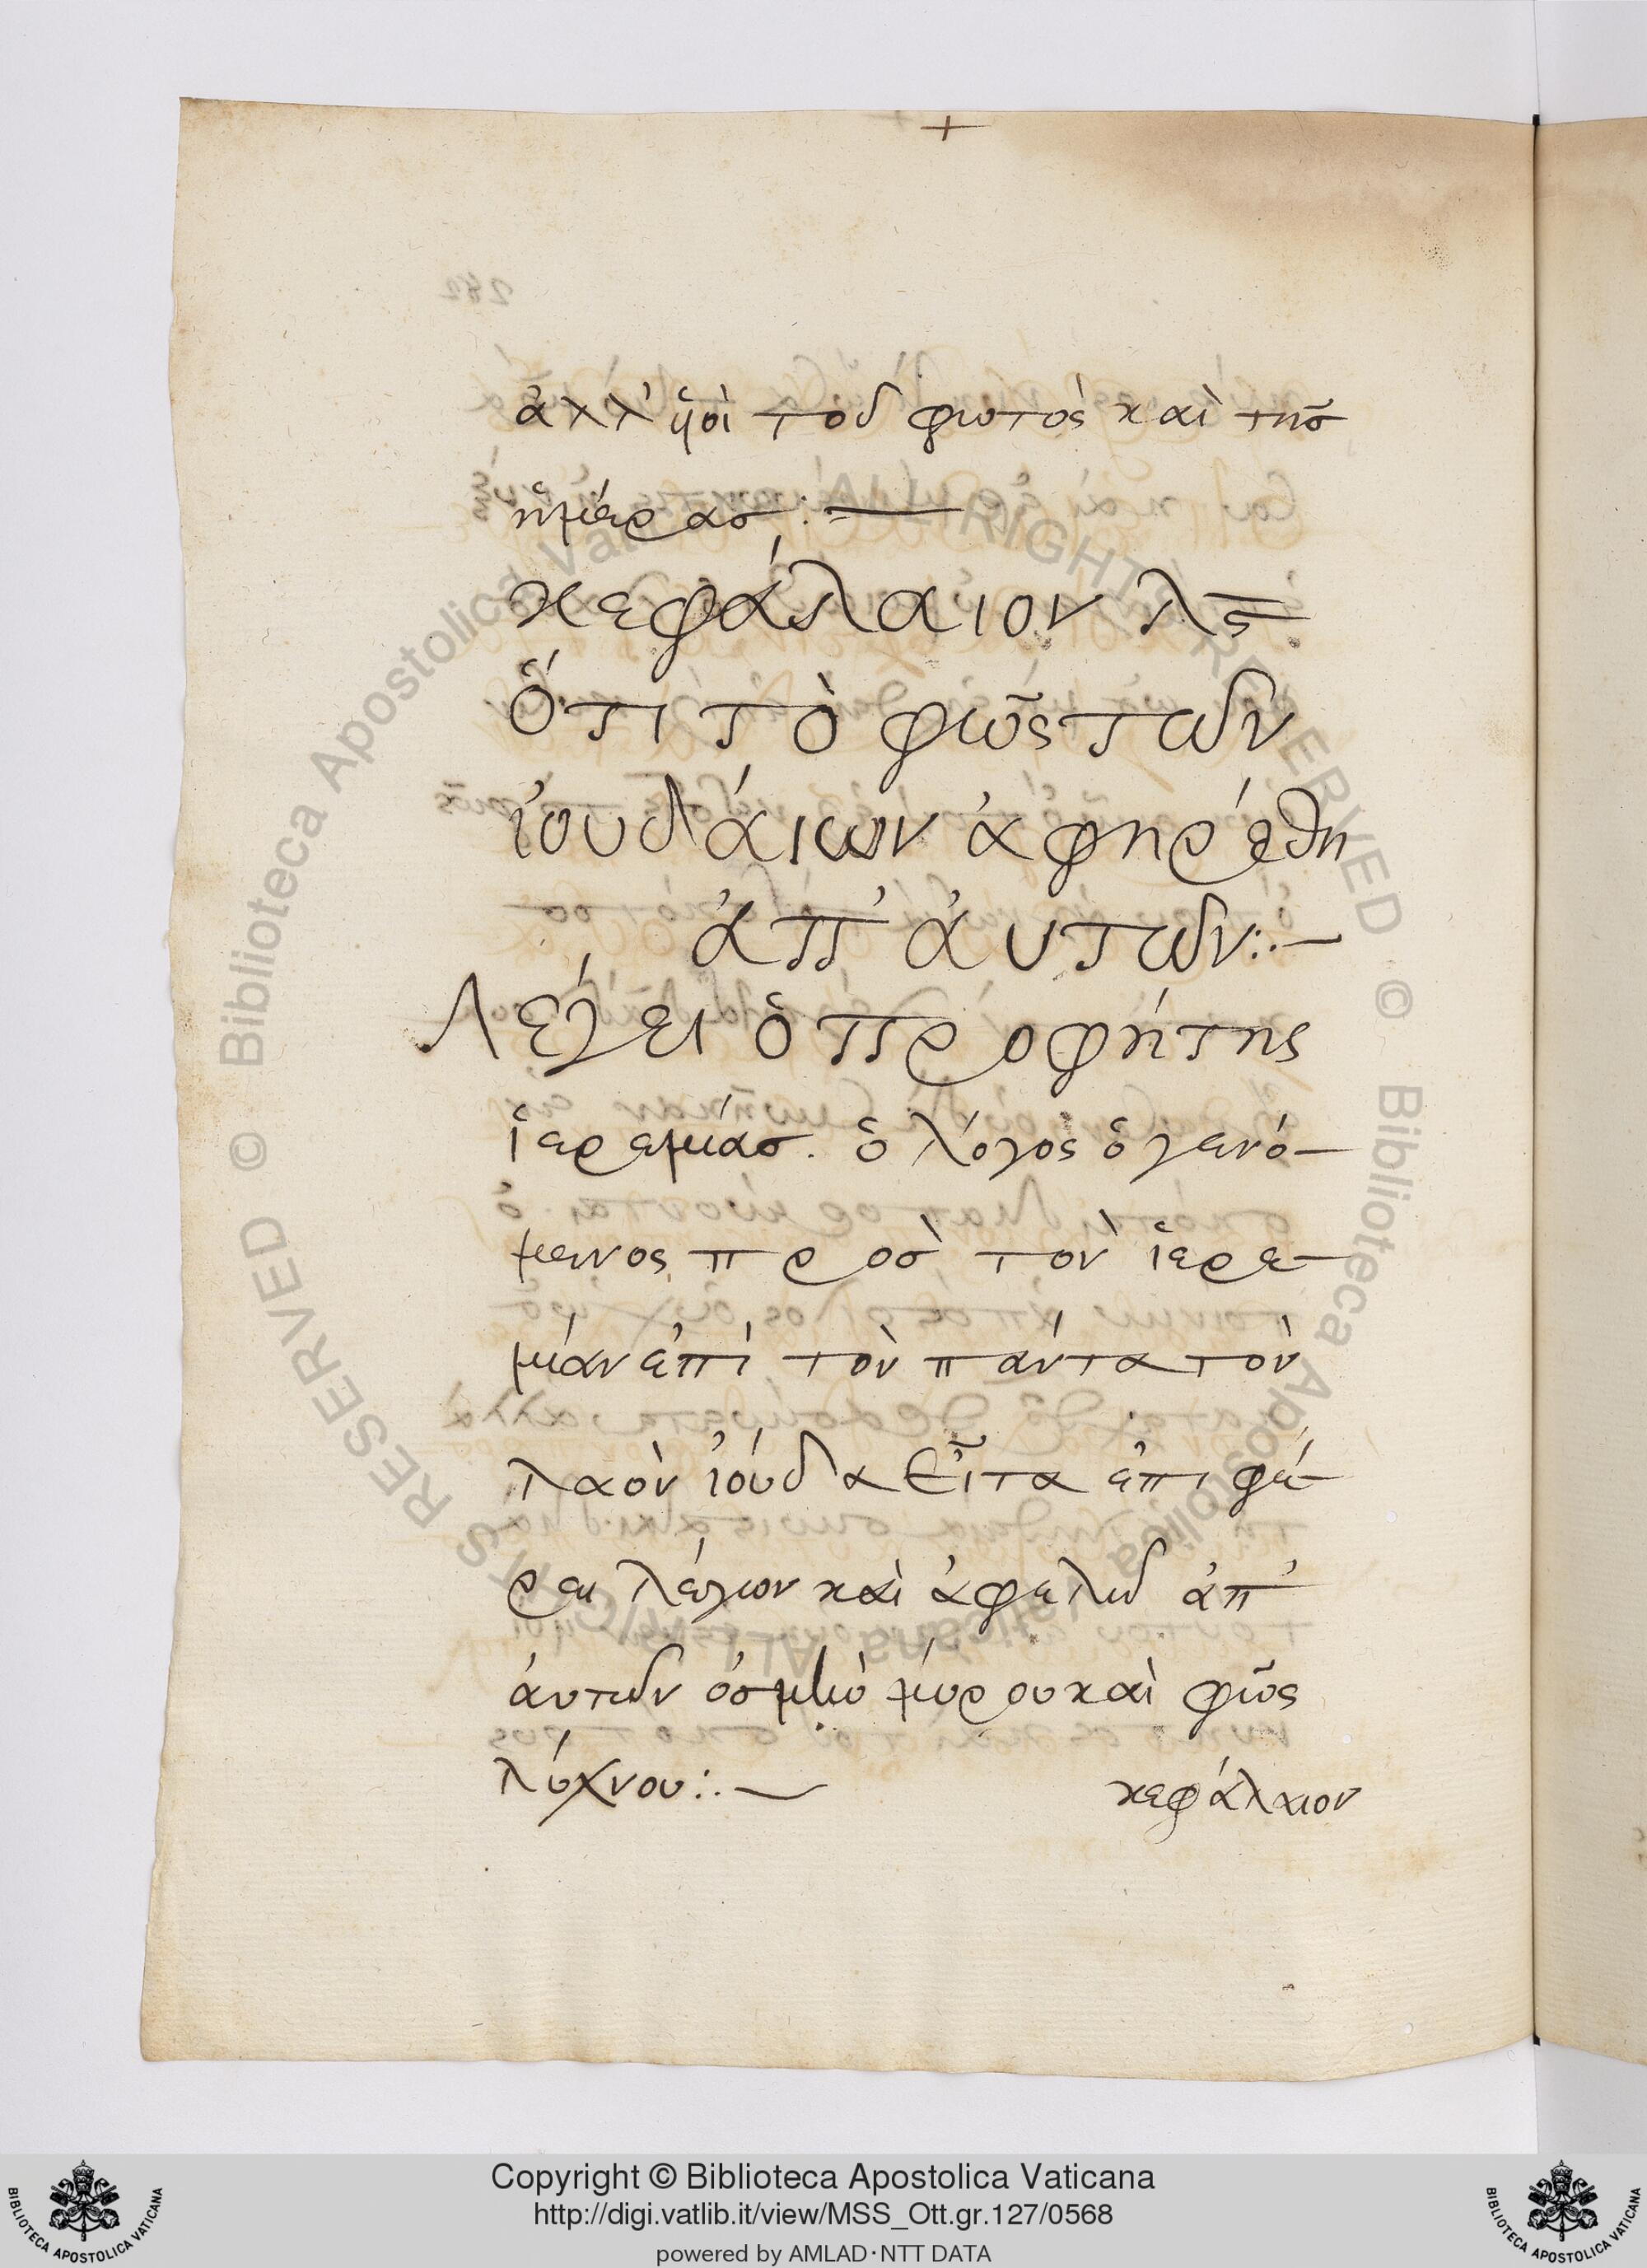 +
ἀλλ' υἱοὶ τοῦ φωτὸς καὶ τῆς
ἡμέρας :—
κεφάλαιον λϛ
ὅτι τὸ φῶς τῶν
ἰουδάιων ἀφηρέθη
ἀπ' ἀυτῶν :.—
Λέγει ὁ προφήτης
ἱερεμίας. ὁ λόγος ὁ γενό-
μενος προσ τὸν ἱερε-
μίαν ἐπὶ τὸν πάντα τὸν
λαὸν ἰούδα εἶτα ἐπιφέ-
ρει λέγων καὶ ἀφελῶ ἀπ'
ἀυτῶν ὀσμὴν μύρου καὶ φῶς
λύχνου :.—
κεφάλαιον
Biblioteca Apostolica Vaticana © ALL RIGHTS RESERVED © Biblioteca Apostolica Vaticana ALL RIGHTS RESERVED ©
BIBLIOTECA APOSTOLICA VATICANA
Copyright © Biblioteca Apostolica Vaticana
http://digi.vatlib.it/view/MSS_Ott.gr.127/0568
powered by AMLAD·NTT DATA
BIBLIOTECA APOSTOLICA VATICANA